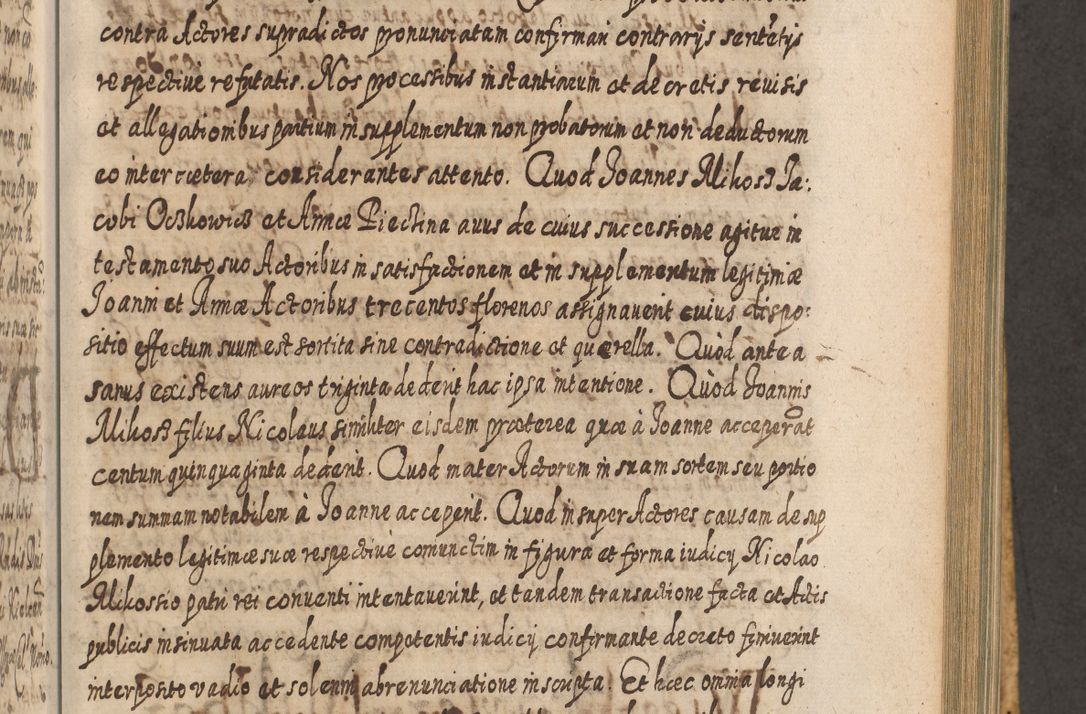 contra Actores supradictos pronunciatam confirmari contrarijs sentētijs
respective refutatis. Nos processibus instantiarum et decretis revisis
et allegationibus partium in supplementum non probatorum et non deductorum
eo inter cætera considerantes attento. Quod Joannes Mikosz Ja:
cobi Oczkowicz et Annæ Piechna avus de cuius successione agitur in
testamento suo Actoribus in satisfactionem et in supplementum legitimæ
Joanni et Annæ Actoribus trecentos florenos assignaverit cuius dispo:
sitio effectum suum est sortita sine contradictione et querella. Quod ante a
sanus existens aureos triginta dederit hac ipsa intentione. Quod Joannis
Mikosz filius Nicolaus similiter eisdem præterea quæ à Joanne acceperāt
centum quinquaginta dederit. Quod mater Actorum in suam sortem seu portio
nem summam notabilem à Joanne acceperit. Quod insuper Actores causam de sup
plemento legitimæ suæ respective comunctim in figura et forma iudicij Nicolao
Mikossio patri rei conventi intentaverint, et tandem transactione facta et Actis
publicis insinuata accedente competentis iudicij confirmante decreto finiverint
interposito vadio et solenni abrenunciatione inscripta. Et hæc omnia longi